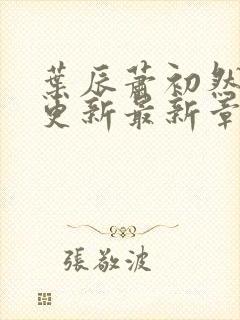 葉辰蕭初然
更新最新章
張敬波